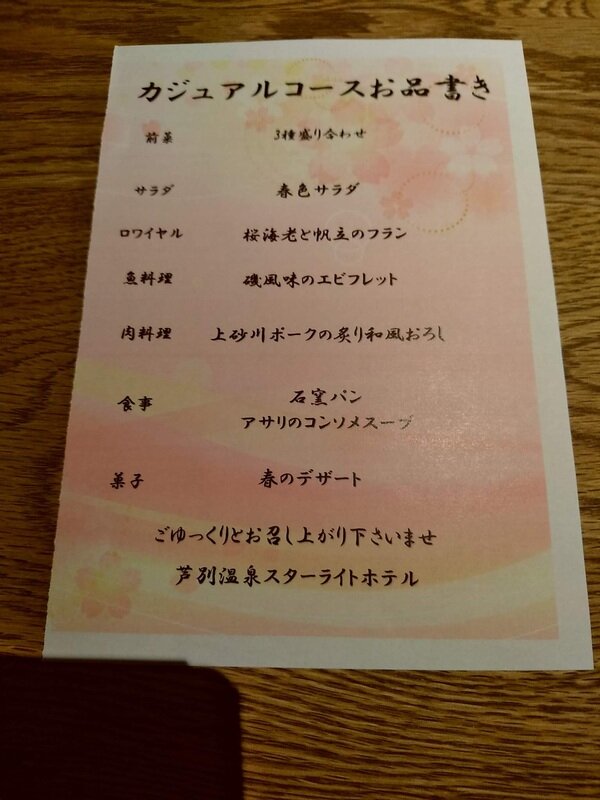 カジュアルコースお品書き
前菜 3種盛り合わせ
サラダ 春色サラダ
ロワイヤル 桜海老と帆立のフラン
魚料理 磯風味のエビフレット
肉料理 上砂川ポークの炙り和風おろし
食事 石窯パン
アサリのコンソメスープ
菓子 春のデザート
ごゆっくりとお召し上がり下さいませ
芦別温泉スターライトホテル